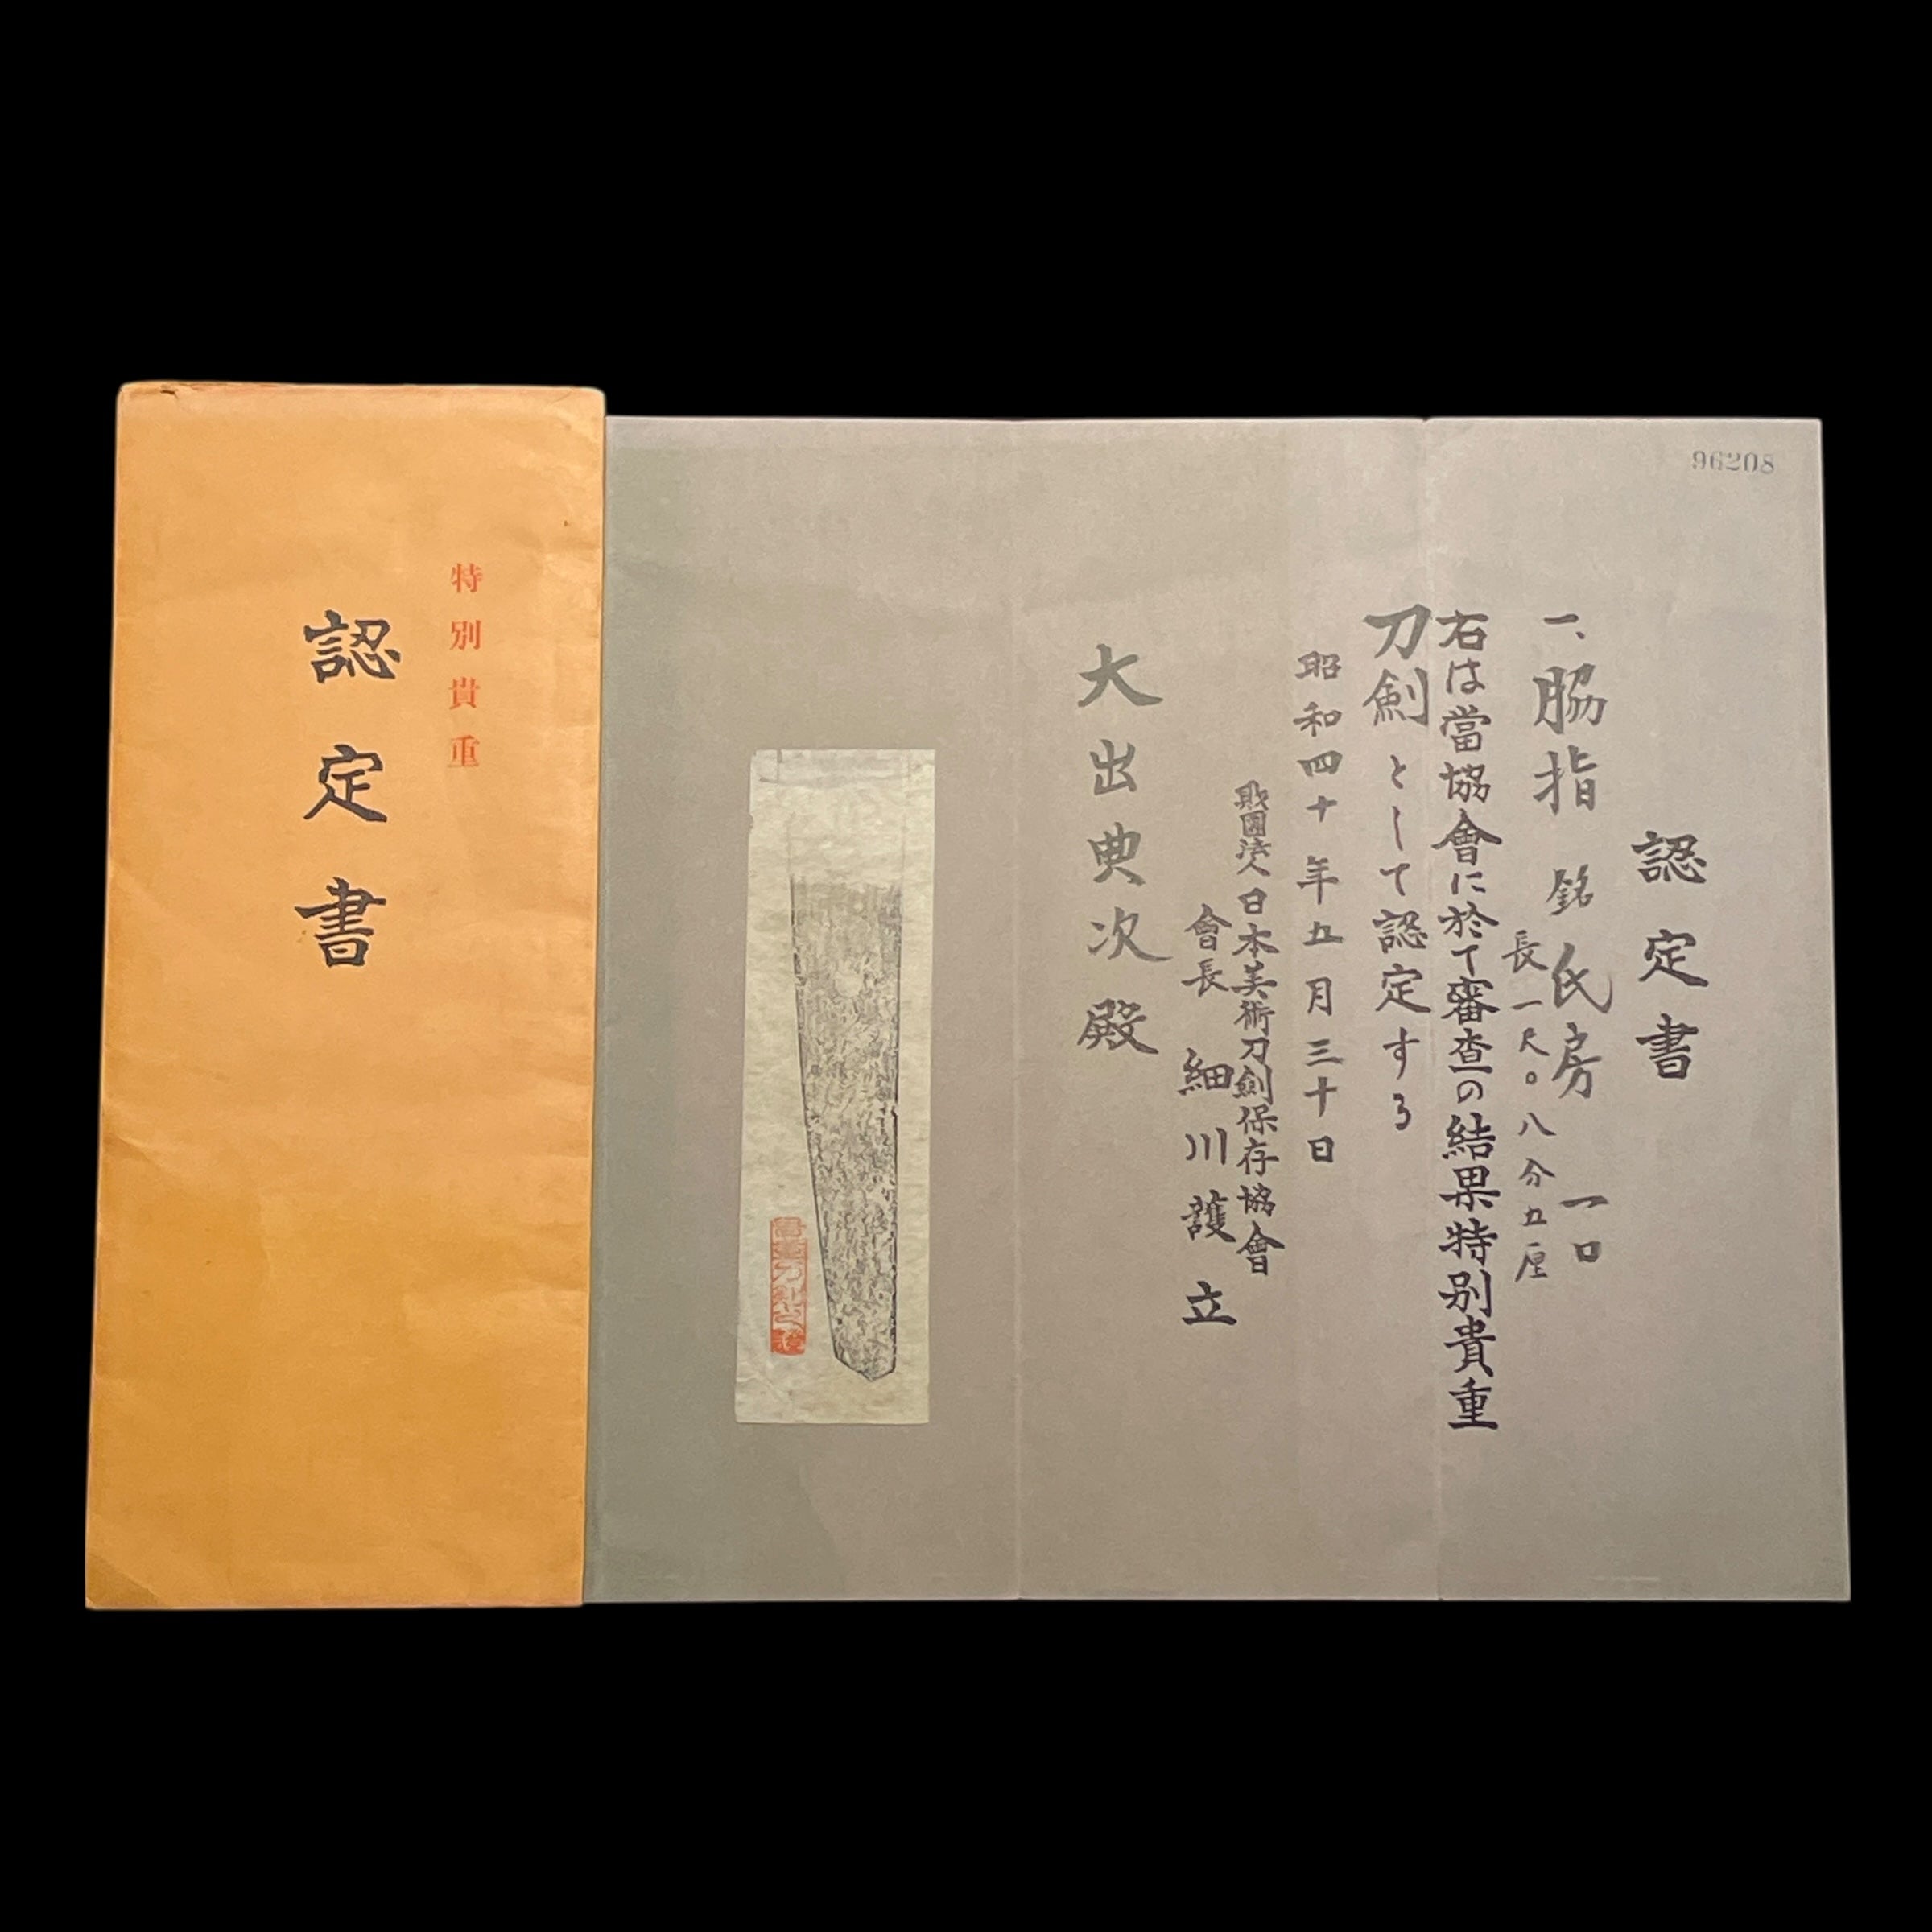 96208
認定書
一、脇指 銘 氏房 一口
長一尺〇八分五厘
右は當協會に於て審査の結果特別貴重
刀劍として認定する
昭和四十年五月三十日
財團法人日本美術刀劍保存協會
會長 細川護立
大出典次殿
特別貴重
認定書